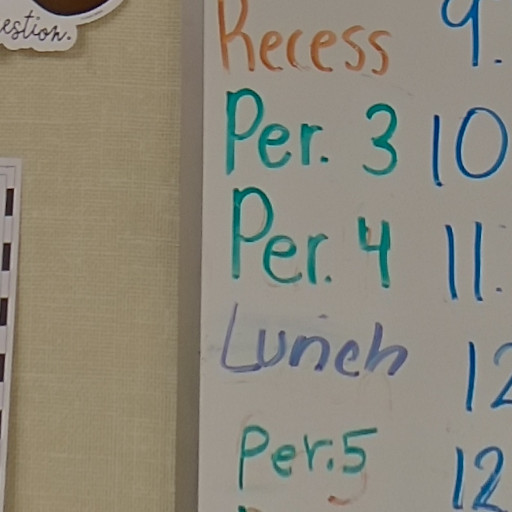 estion.
Recess 9.
Per. 3 10
Per. 4 11.
Lunch 12
Per. 5 12